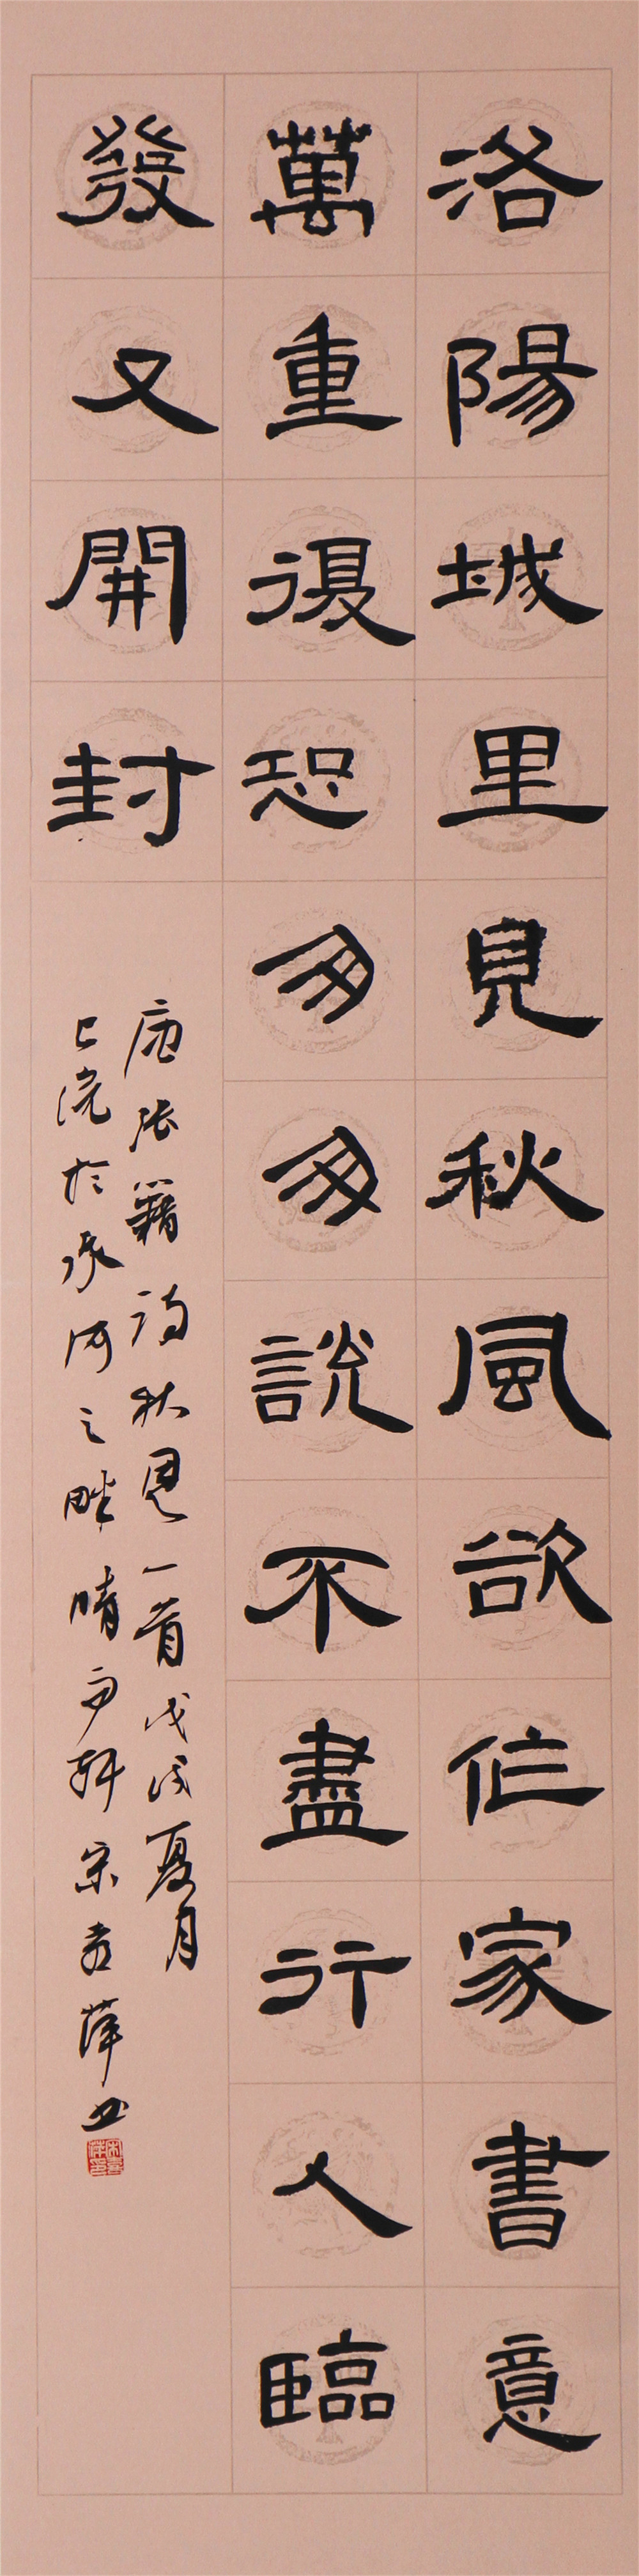 洛陽城里見秋風欲作家書意
萬重復恐匆匆說不盡行人臨
發又開封
唐張籍詩秋思一首戊戌夏月
上浣於河之畔晴雨軒宋萍书